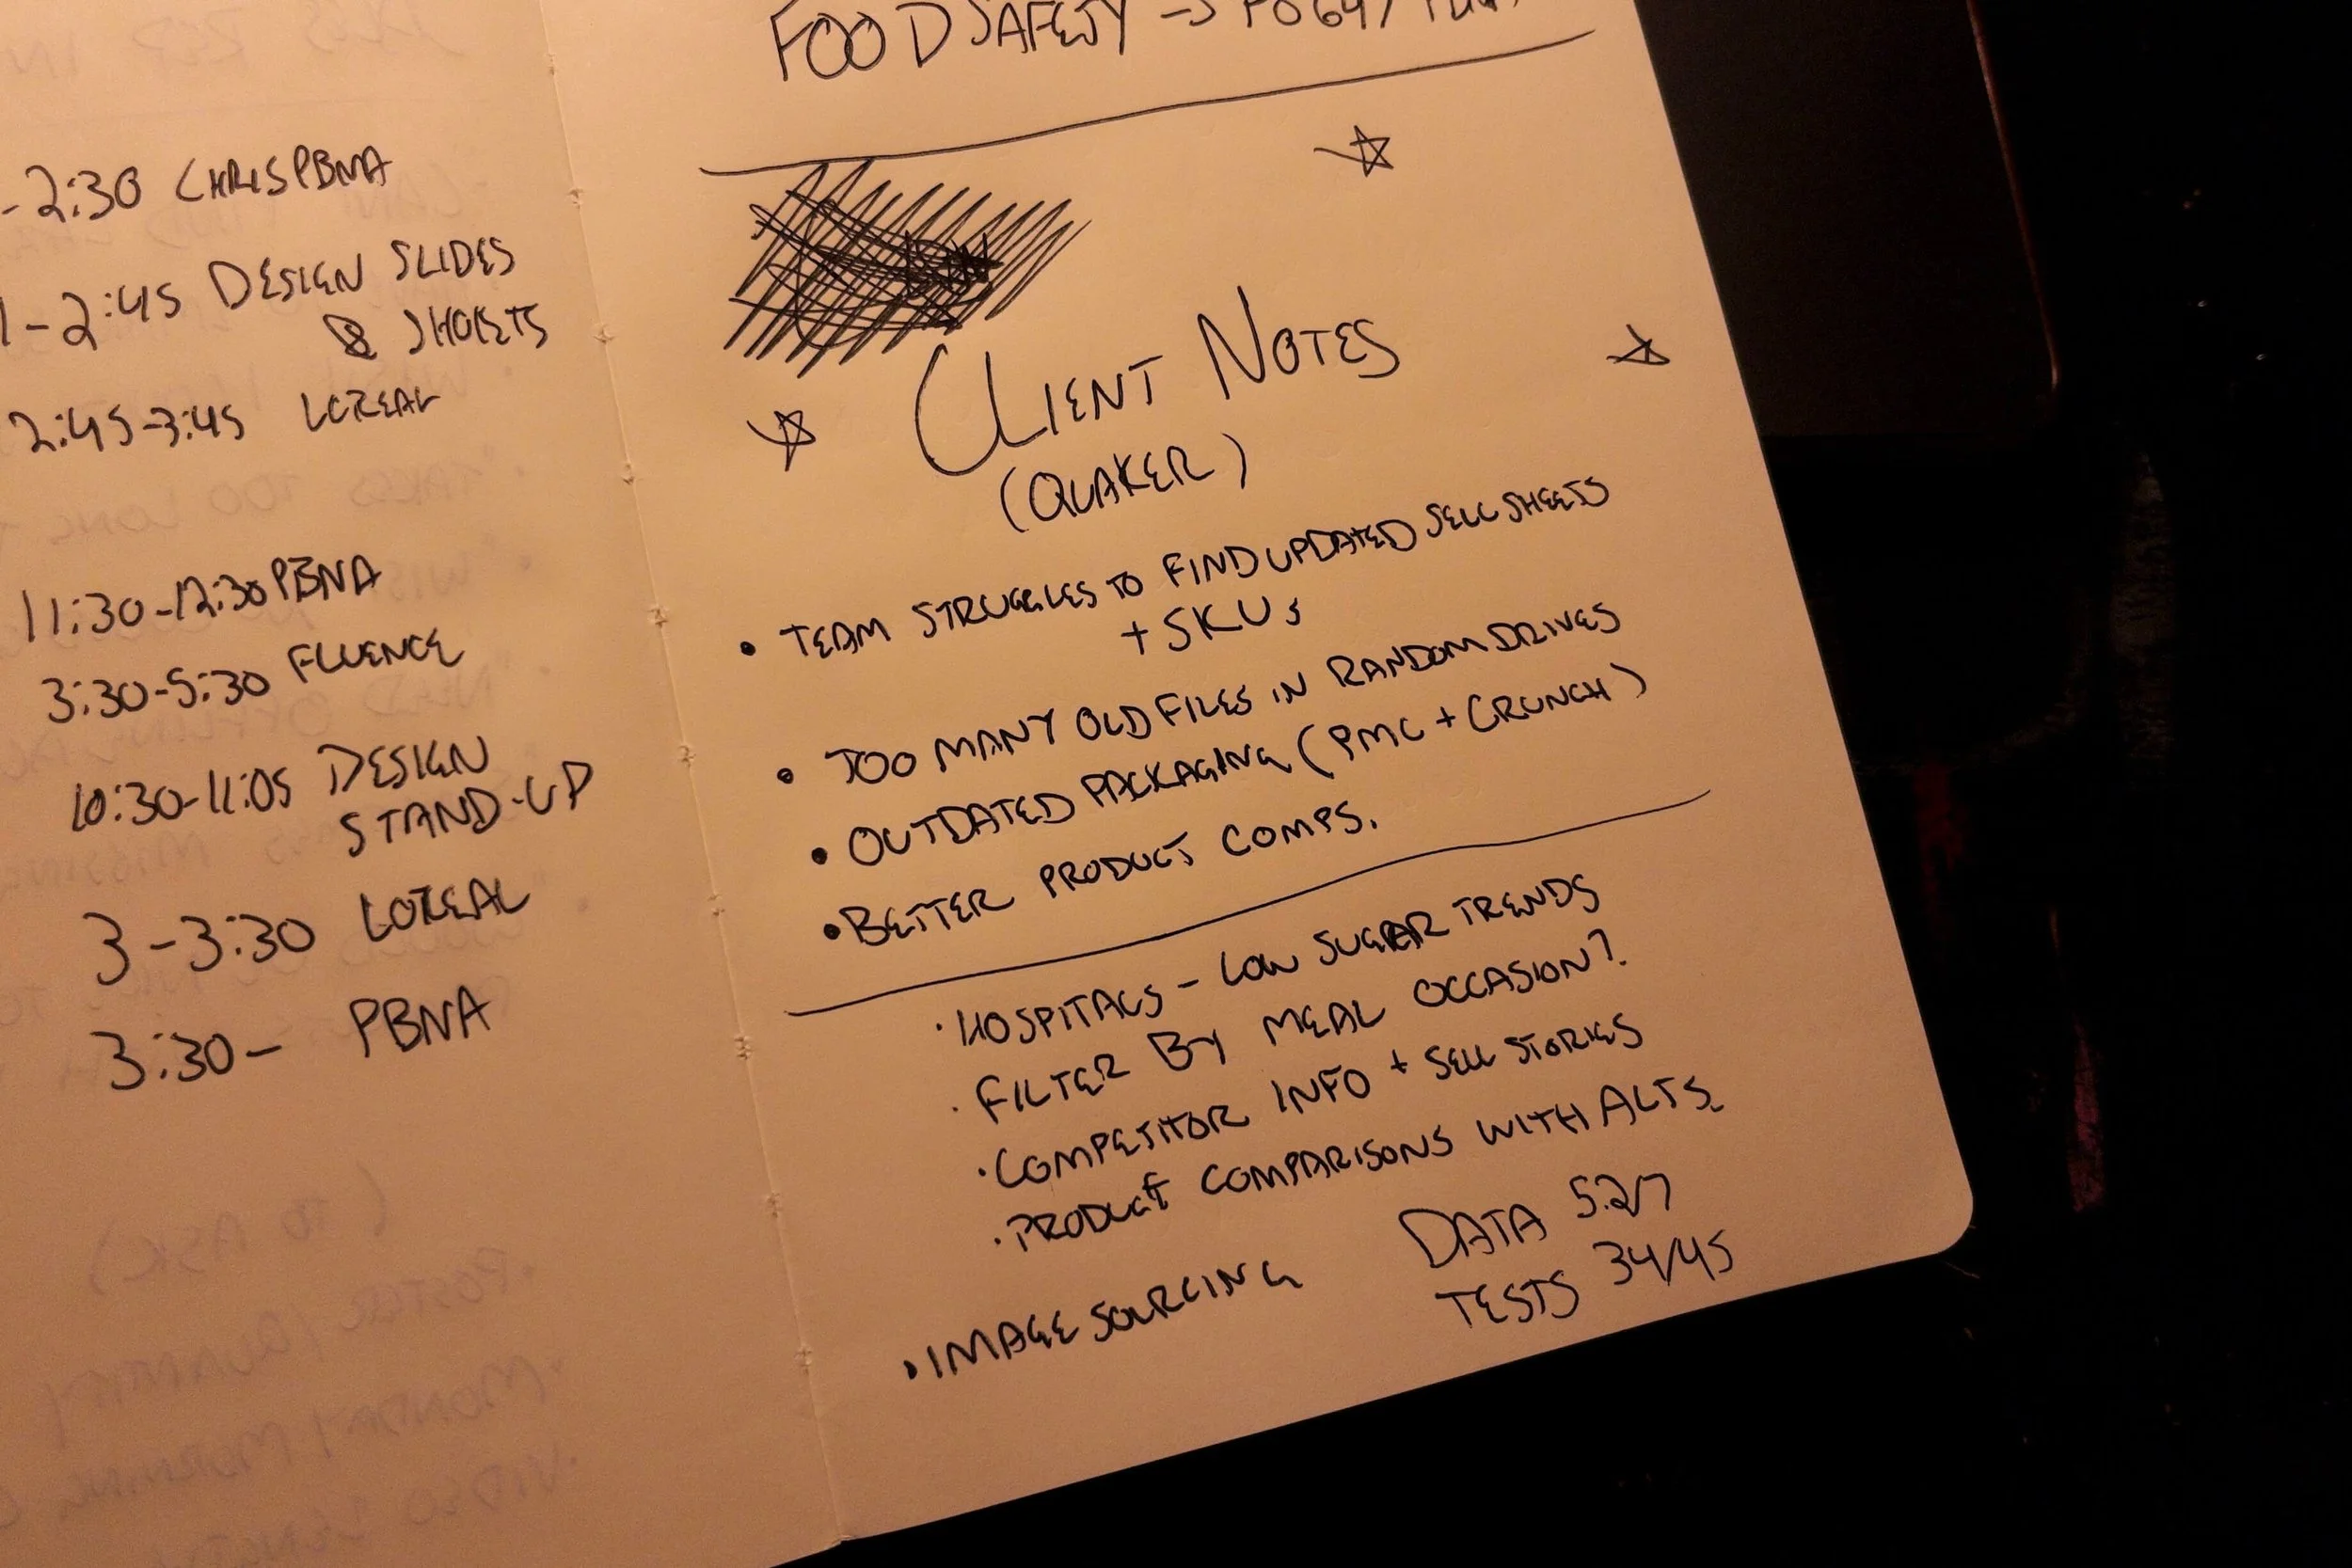 -2:30 CHRIS PBNA
1-2:45 DESIGN SLIDES
& SHORTS
2:45-3:45 LOREAL
11:30-12:30 PBNA
3:30-5:30 FLUENCE
10:30-11:05 DESIGN
STAND-UP
3-3:30 LOREAL
3:30- PBNA
FOOD SAFETY →
CLIENT NOTES
(QUAKER)
• TEAM STRUGGLES TO FIND UPDATED SELL SHEETS
+ SKUs
• TOO MANY OLD FILES IN RANDOM DRIVES
• OUTDATED PACKAGING (PMC + CRUNCH)
• BETTER PRODUCT COMPS.
· HOSPITALS - LOW SUGAR TRENDS
· FILTER BY MEAL OCCASION?
· COMPETITOR INFO + SELL STORIES
· PRODUCT COMPARISONS WITH ALTS.
• IMAGE SOURCING
DATA 5.2/7
TESTS 34/45